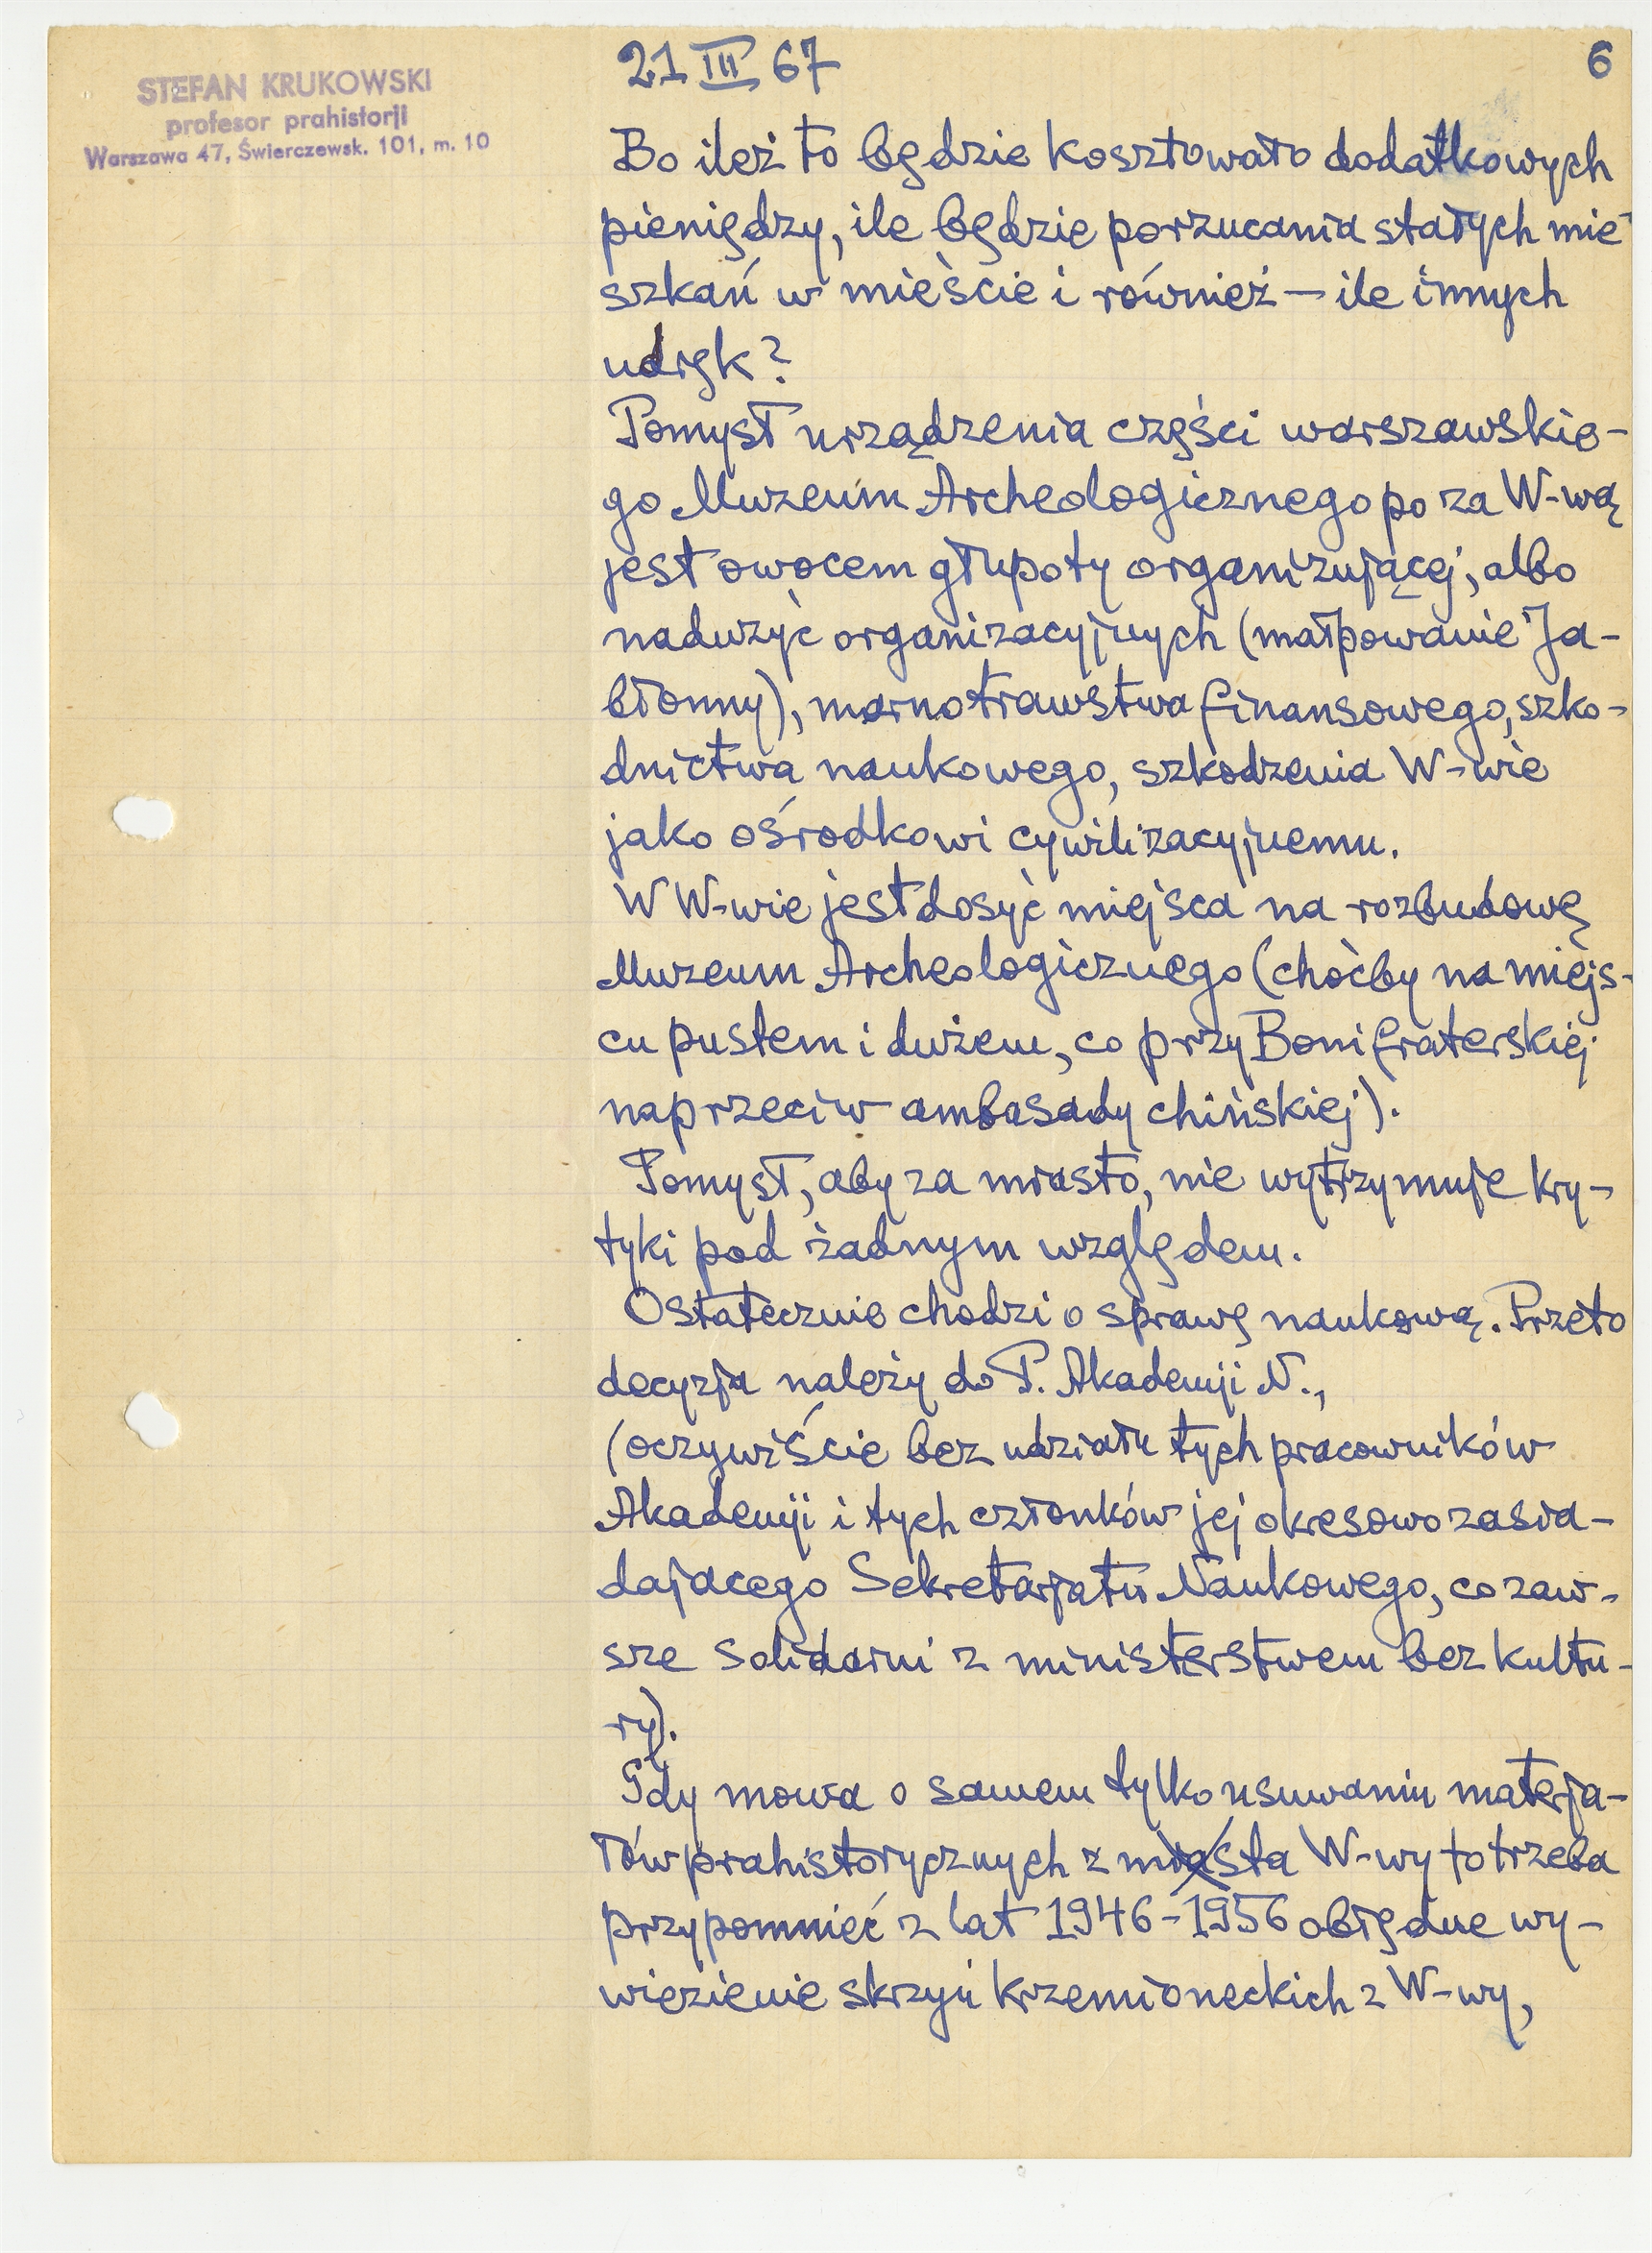 STEFAN KRUKOWSKI
profesor prahistorji
Warszawa 47, Świerczewsk. 101, m. 10
21 III 67
6
Bo ileż to będzie kosztowało dodatkowych
pieniędzy, ile będzie porzucania stałych mie-
szkań w mieście i również — ile innych
udręk?
Pomysł urządzenia części warszawskie-
go Muzeum Archeologicznego po za W-wą
jest owocem głupoty organizującej, albo
nadużyć organizacyjnych (małpowanie Ja-
błonny), marnotrawstwa finansowego, szko-
dnictwa naukowego, szkodzenia W-wie
jako ośrodkowi cywilizacyjnemu.
W W-wie jest dosyć miejsca na rozbudowę
Muzeum Archeologicznego (choćby na miejs-
cu pustem i dużem, co przy Bonifraterskiej
naprzeciw ambasady chińskiej).
Pomysł, aby za miasto, nie wytrzymuje kry-
tyki pod żadnym względem.
Ostatecznie chodzi o sprawę naukową. Przeto
decyzja należy do P. Akademji N.,
(oczywiście bez udziału tych pracowników
Akademji i tych członków jej okresowo zasia-
dajacego Sekretarjatu Naukowego, co zaw-
sze solidarni z ministerstwem bez kultu-
ry).
Gdy mowa o samem tylko usuwaniu materja-
łów prahistorycznych z miasta W-wy to trzeba
przypomnieć z lat 1946-1956 obłędne wy-
wiezienie skrzyń krzemioneckich z W-wy,